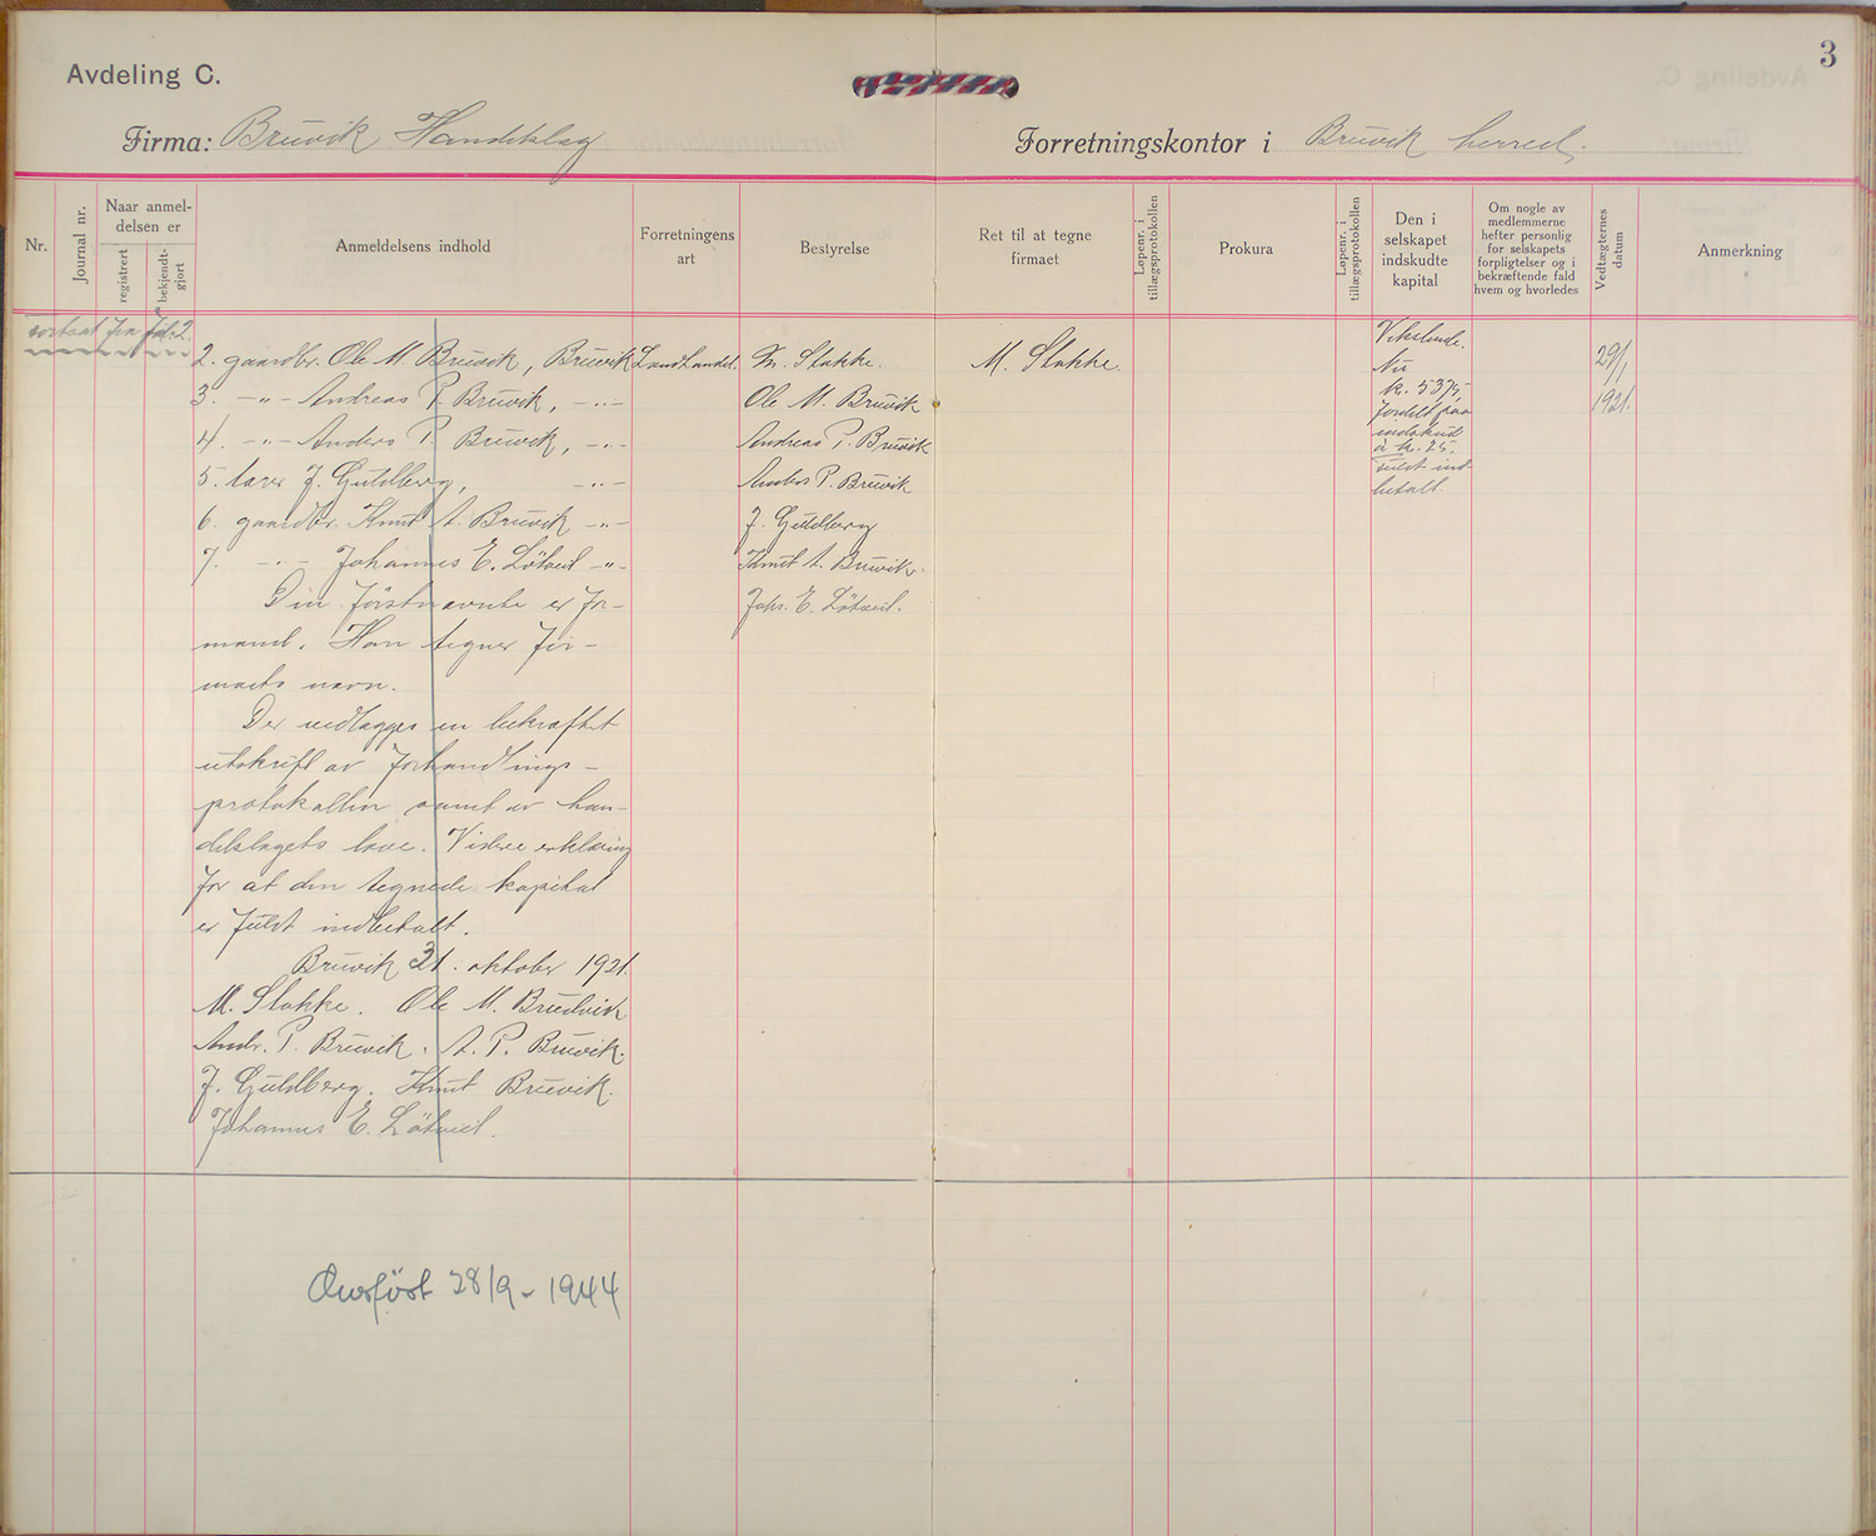 3
Avdeling C.
Firma: Bruvik Handelslag
Forretningskontor i Bruvik herred.
Nr.
Journal nr.
Naar anmel-
delsen er
registrert
bekjendt-
gjort
Anmeldelsens indhold
Forretningens
art
Bestyrelse
Ret til at tegne
firmaet
Løpenr. i
tillægsprotokollen
Prokura
Løpenr. i
tillægsprotokollen
Den i
selskapet
indskudte
kapital
Om nogle av
medlemmerne
hefter personlig
for selskapets
forpligtelser og i
bekræftende fald
hvem og hvorledes
Vedtægternes
datum
Anmerkning
fortsat fra fol. 2.
2. gaardbr. Ole M. Bruvik, Bruvik
3. -"- Andreas P. Bruvik, -"-
4. -"- Anders P. Bruvik, -"-
5. lærer J. Guldberg, -"-
6. gaardbr. Knut A. Bruvik -"-
7. -"- Johannes E. Lötveit -"-
Den förstnævnte er for-
mand. Han tegner fir-
maets navn.
Der vedlægges en bekræftet
utskrift av forhandlings-
protokollen samt av han-
delslagets love. Videre erklæring
for at den tegnede kapital
er fuldt indbetalt.
Bruvik 31. oktober 1921.
M. Stokke. Ole M. Brudvik
Andr. P. Bruvik. A. P. Bruvik.
J. Guldberg. Knut Bruvik.
Johannes E. Lötveit.
Landhandel.
M. Stokke.
Ole M. Bruvik
Andreas P. Bruvik
Anders P. Bruvik
J. Guldberg
Knut A. Bruvik.
Johs. E. Lötveit.
M. Stokke.
Vekslende.
Nu
kr. 5375,-
fordelt paa
indskud
à kr. 25.
fuldt ind-
betalt.
29/1
1921.
Overfört 28/9 - 1944